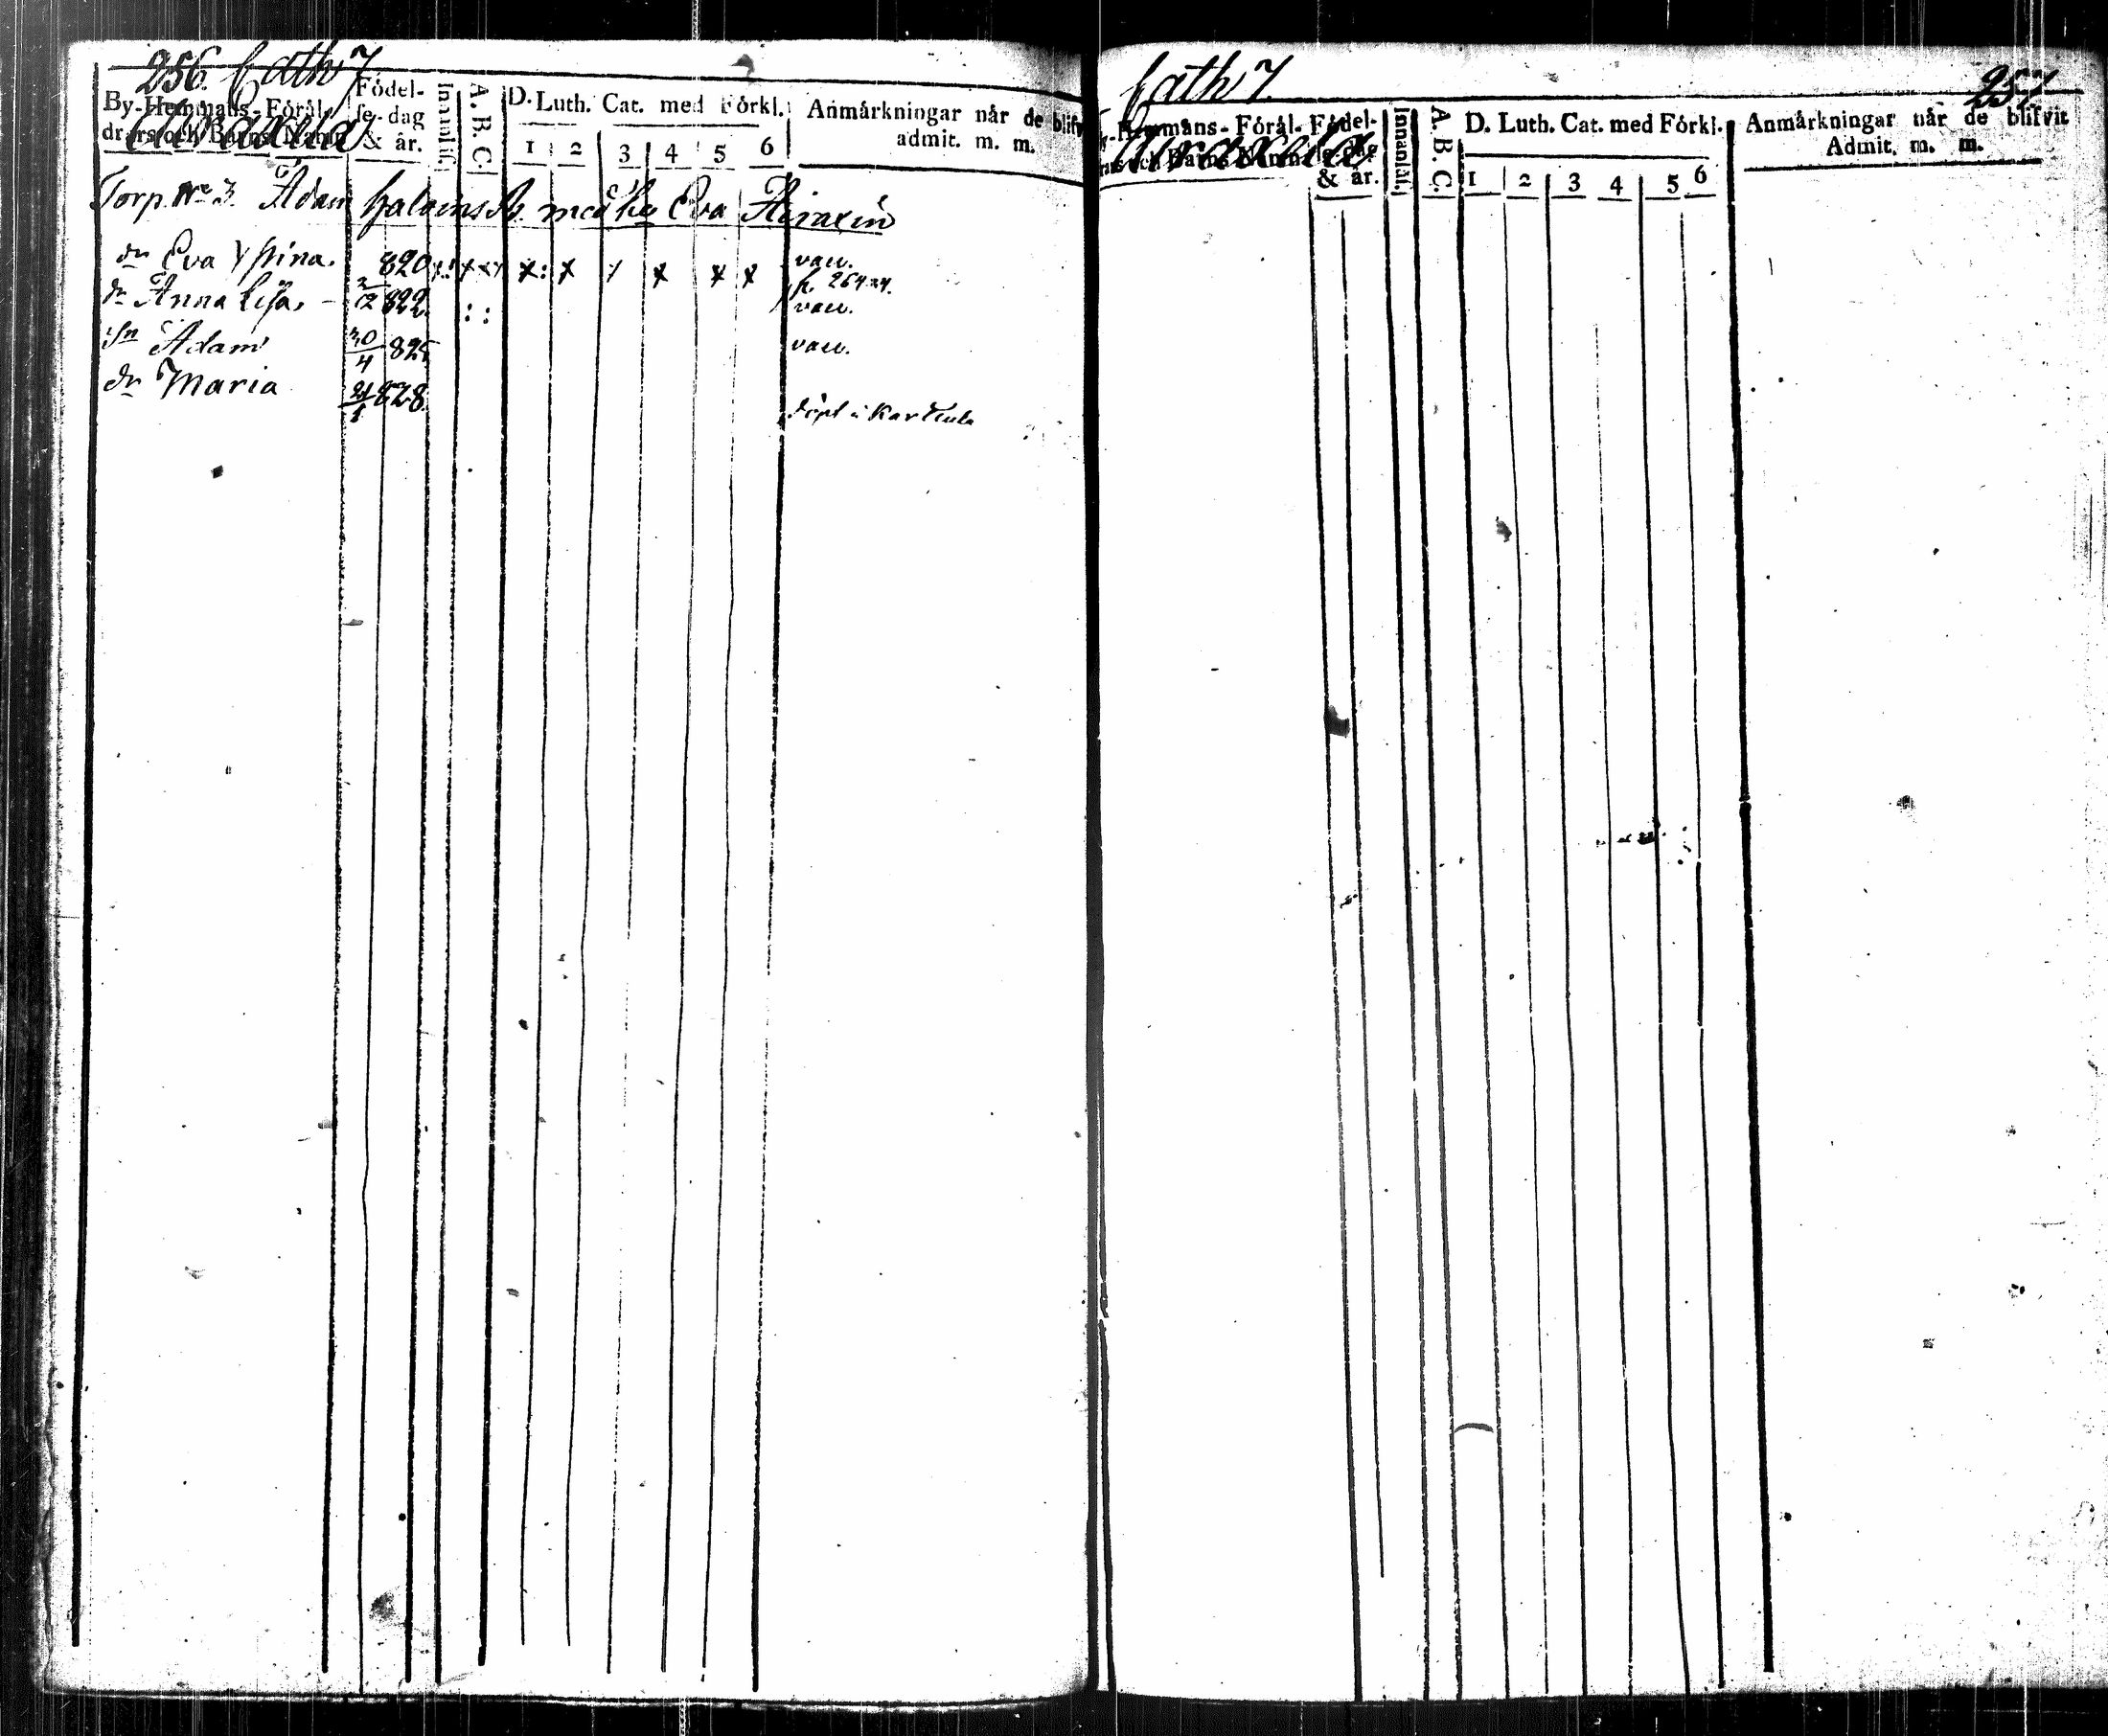 256. Cath 7
By-Hemmans-Förål-
drars och Barns Namn
Födel-
se-dag
& år.
Innanläs.
A. B. C.
D. Luth. Cat. med Förkl.
1 2 3 4 5 6
Anmårkningar når de blifv
admit. m. m.
Torp. No 3. Adam
med Eva Airaxin
dr Eva Stina. 820 x x x x x x vacc.
fl. 264
dr Anna Lisa. 2/12 822. : : vacc.
Sn Adam 30/4 825 vacc.
dr Maria 828. döpt i Karttula
Cath 7.
257.
Hemmans-Förål-
och Barns Namn
Födel-
dag
& år.
Innanläs.
A. B. C.
D. Luth. Cat. med Förkl.
1 2 3 4 5 6
Anmårkningar når de blifvit
Admit. m. m.